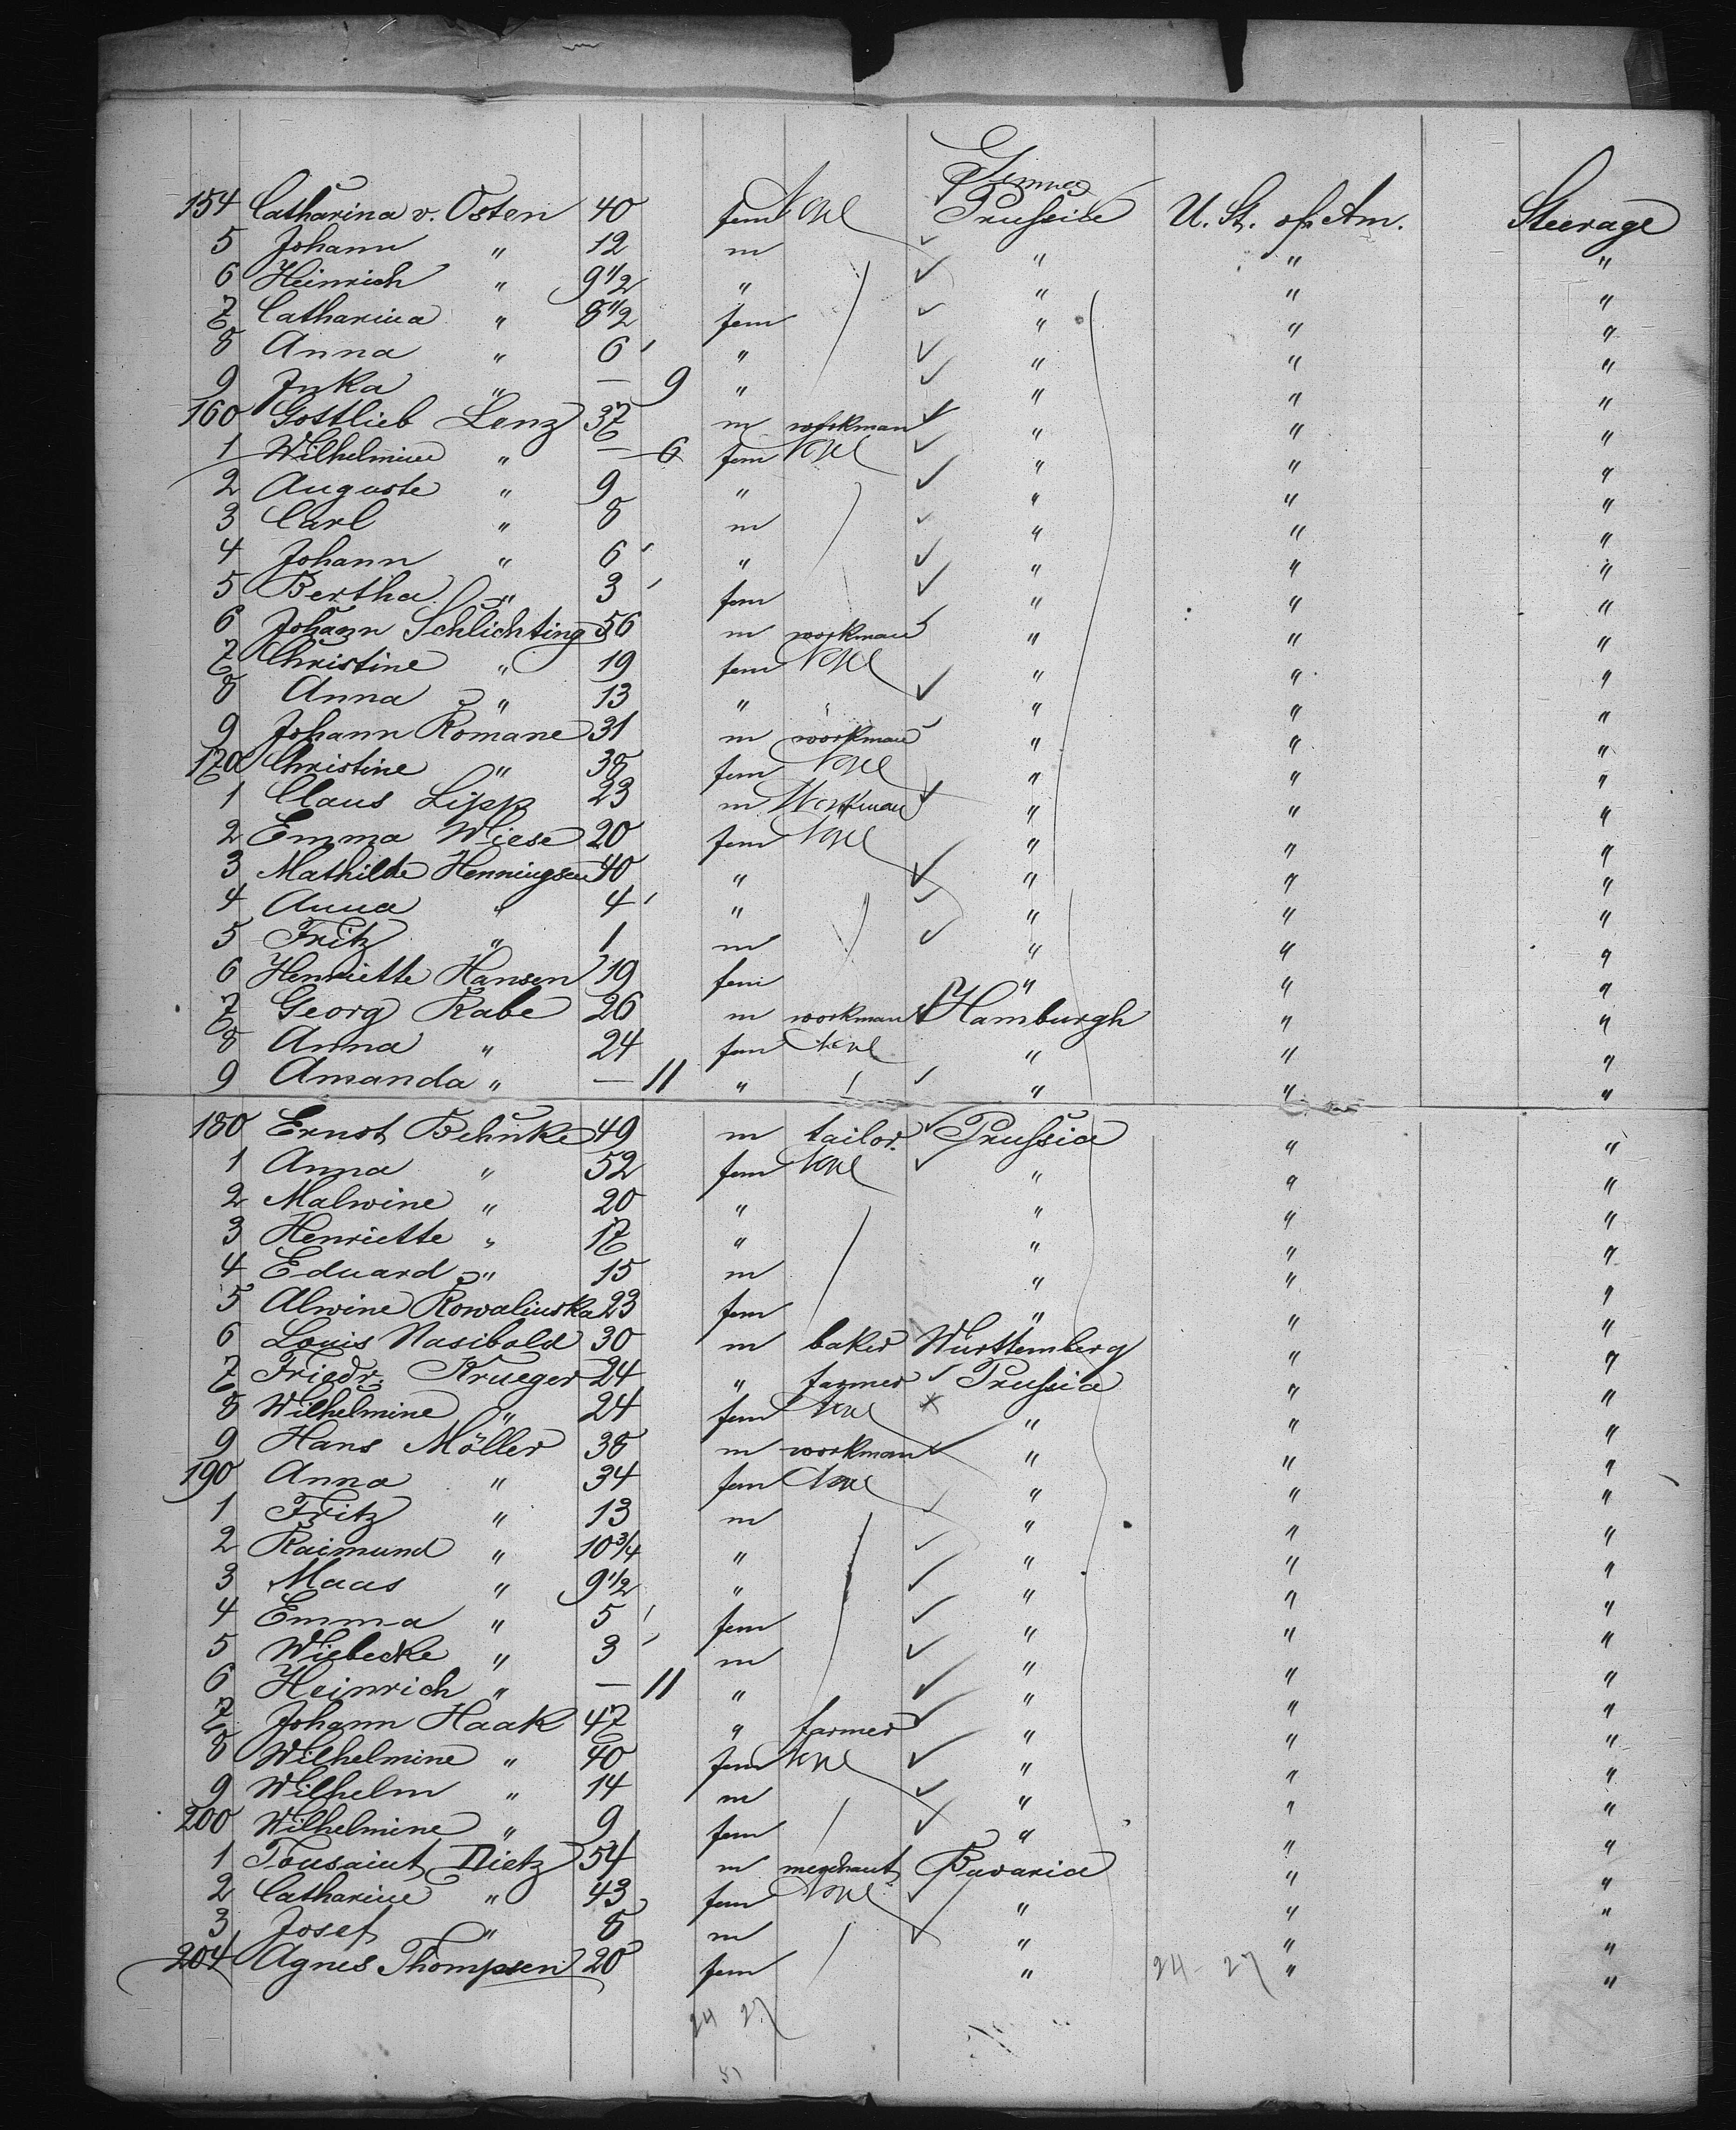 154 Catharina v. Osten 40 fem None Prussia U. St. of Am. Steerage
5 Johann " 12 m " " "
6 Heinrich " 9 1/2 " " " "
7 Catharina " 8 1/2 fem " " "
8 Anna " 6 " " " "
9 " — 9 " " " "
160 Gottlieb Lenz 37 m workman " " "
1 Wilhelmine " — 6 fem None " " "
2 Auguste " 9 " " " "
3 Carl " 8 m " " "
4 Johann " 6 " " " "
5 Bertha " 3 fem " " "
6 Johann Schlichting 56 m workman " " "
7 Christine " 19 fem None " " "
8 Anna " 13 " " " "
9 Johann Romane 31 m workman " " "
170 Christine " 38 fem None " " "
1 Claus Lipp 23 m Workman " " "
2 Emma Wiese 20 fem None " " "
3 Mathilde Henningsen 40 " " " "
4 Anna " 4 " " " "
5 Fritz " 1 m " " "
6 Henriette Hansen 19 fem " " "
7 Georg Rabe 26 m workman Hamburgh " "
8 Anna " 24 fem None " " "
9 Amanda " — 11 " " " "
180 Ernst Behnke 49 m tailor. Prussia " "
1 Anna " 52 fem None " " "
2 Malwine " 20 " " " "
3 Henriette " 17 " " " "
4 Eduard " 15 m " " "
5 Alwine 23 fem " " "
6 Louis Nasibold 30 m baker Württemberg " "
7 Friedr. Krueger 24 " farmer Prussia " "
8 Wilhelmine " 24 fem None " " "
9 Hans Möller 38 m workman " " "
190 Anna " 34 fem None " " "
1 Fritz " 13 m " " "
2 Raimund " 10 3/4 " " " "
3 Maas " 9 1/2 " " " "
4 Emma " 5 fem " " "
5 Wiebecke " 3 m " " "
6 Heinrich " — 11 " " " "
7 Johann Haak 47 " farmer " " "
8 Wilhelmine " 40 fem None " " "
9 Wilhelm " 14 m " " "
200 Wilhelmine " 9 fem " " "
1 Tousaint Dietz 54 m merchant Bavaria " "
2 Catharine " 43 fem None " " "
3 Josef " 8 m " " "
204 Agnes Thompsen 20 fem " 24 - 27 " "
24 27